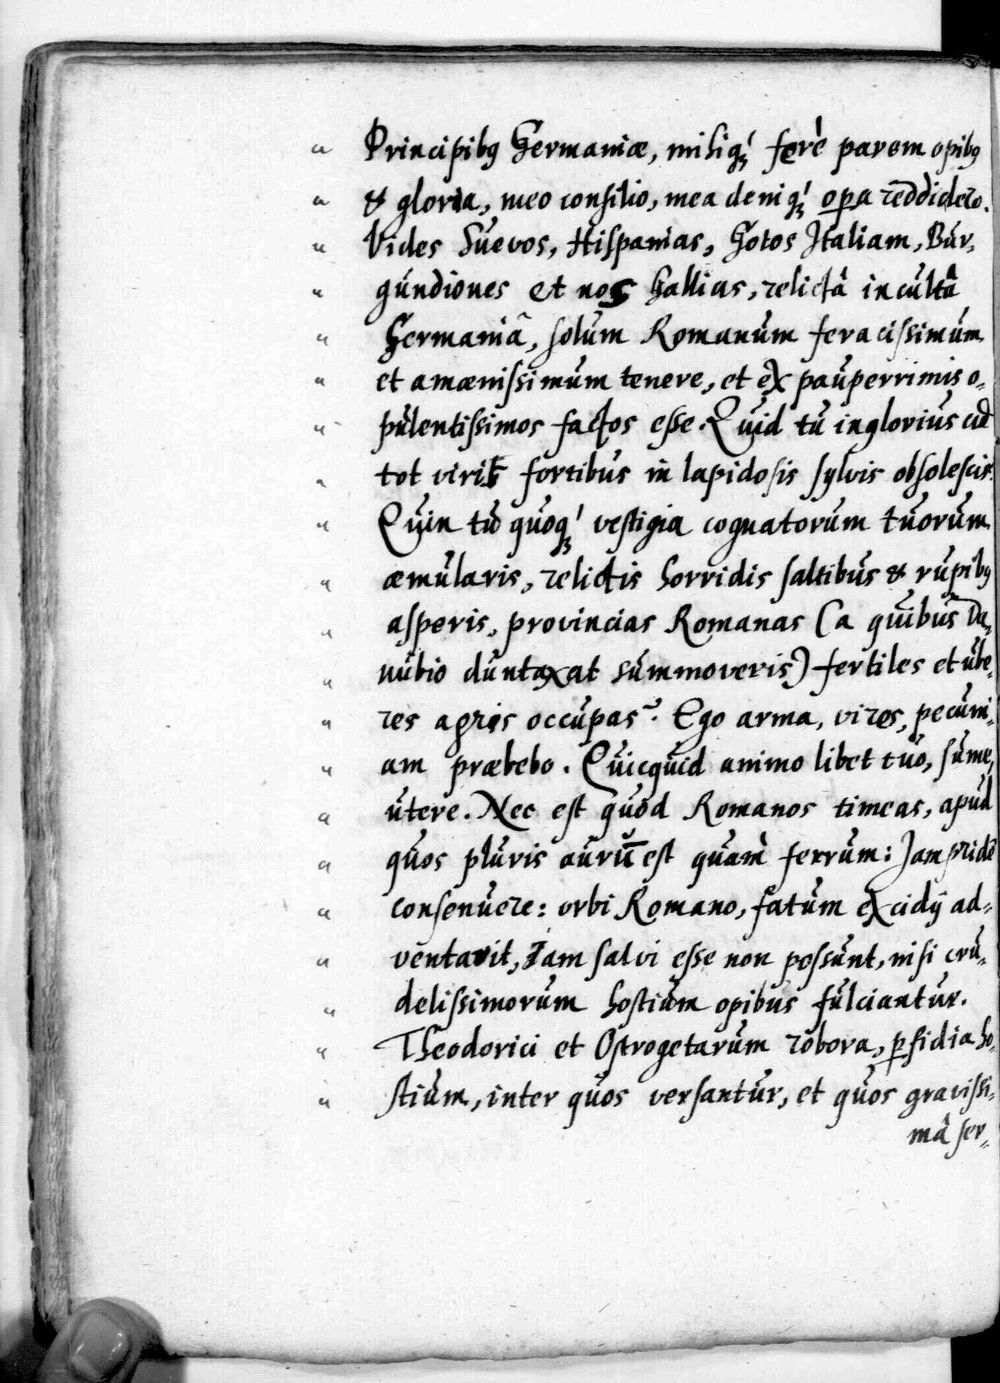 " Principibꝰ Germaniæ, mihiqꝫ ferè parem opibꝰ
" & gloria, meo consilio, mea deniqꝫ opera reddidero.
" Vides Suevos, Hispanias, Gotos Italiam, Bur-
" gundiones et nos Gallias, relictâ incultâ
" Germaniâ, solum Romanum feracissimum
" et amænissimum tenere, et ex pauperrimis o-
" pulentissimos factos esse. Quid tu inglorius cũ
" tot viris fortibus in lapidosis sylvis obsolescis.
" Quin tu quoqꝫ vestigia cognatorum tuorum
" æmularis, relictis horridis saltibus & rupibꝰ
" asperis, provincias Romanas (a quibus Da-
" nubio duntaxat summoveris) fertiles et ube-
" res agris occupas? Ego arma, vires, pecuni-
" am præbebo. Quicquid animo libet tuo, sume,
" utere. Nec est quod Romanos timeas, apud
" quos pluris aurũ est quam ferrum: Jam pridẽ
" consenuere: orbi Romano, fatum excidij ad-
" ventavit, Jam salvi esse non possunt, nisi cru-
" delissimorum hostium opibus fulciantur.
" Theodorici et Ostrogetarum robora, ꝑfidia ho-
" stium, inter quos versantur, et quos gravissi-
mâ ser-